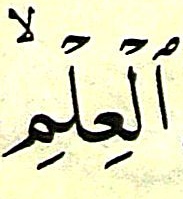 ٱلۡعِلۡمِۙ